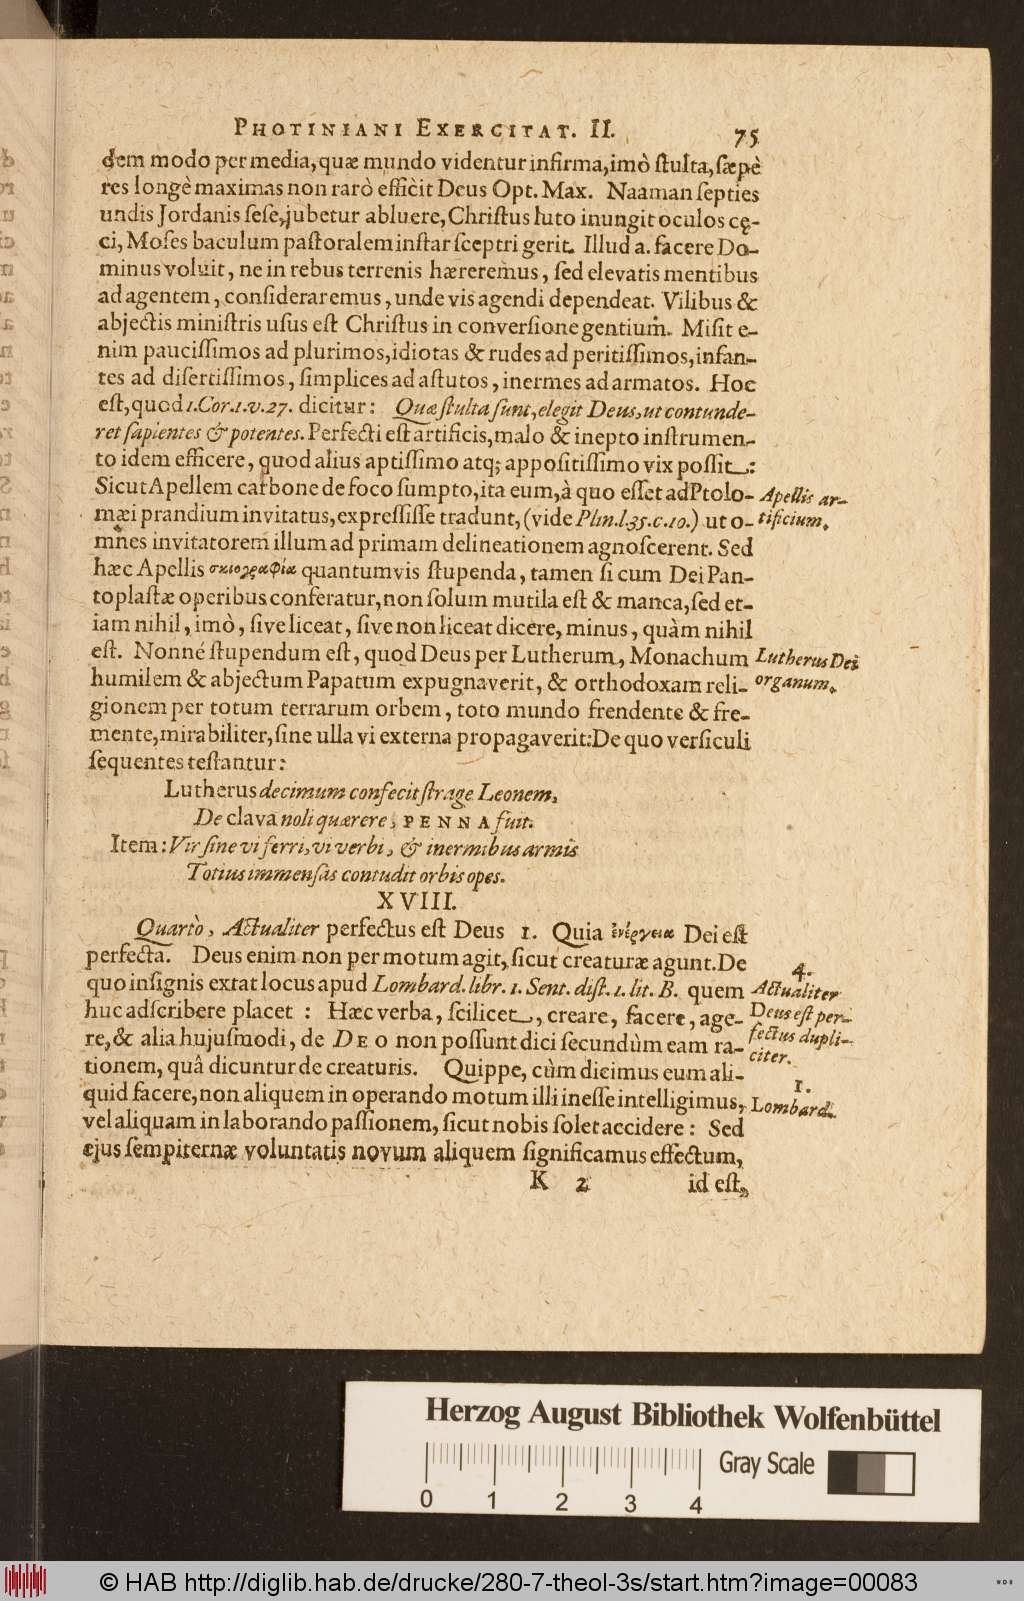 PHOTINIANI EXERCITAT. II.
75
dem modo per media, quæ mundo videntur infirma, imò ſtulta, ſæpè
res longè maximas non rarò efficit Deus Opt. Max. Naaman ſepties
undis Jordanis ſeſe, jubetur abluere, Chriſtus luto inungit oculos cę-
ci, Moſes baculum paſtoralem inſtar ſceptri gerit. Illud a. facere Do-
minus voluit, ne in rebus terrenis hæreremus, ſed elevatis mentibus
ad agentem, conſideraremus, unde vis agendi dependeat. Vilibus &
abjectis miniſtris uſus eſt Chriſtus in converſione gentium. Miſit e-
nim pauciſſimos ad plurimos, idiotas & rudes ad peritiſſimos, infan-
tes ad diſertiſſimos, ſimplices ad aſtutos, inermes ad armatos. Hoc
eſt, quod 1. Cor. 1. v. 27. dicitur: Quæ ſtulta ſunt, elegit Deus, ut contunde-
ret ſapientes & potentes. Perfecti eſt artificis, malo & inepto inſtrumen-
to idem efficere, quod alius aptiſſimo atq; appoſitiſſimo vix poſſit:
Sicut Apellem carbone de foco ſumpto, ita eum, à quo eſſet ad Ptolo-
mæi prandium invitatus, expreſſiſſe tradunt, (vide Plin. l. 35. c. 10.) ut o-
mnes invitatorem illum ad primam delineationem agnoſcerent. Sed
hæc Apellis σκιογραφία quantumvis ſtupenda, tamen ſi cum Dei Pan-
toplaſtæ operibus conferatur, non ſolum mutila eſt & manca, ſed et-
iam nihil, imò, ſive liceat, ſive non liceat dicere, minus, quàm nihil
eſt. Nonné ſtupendum eſt, quod Deus per Lutherum, Monachum
humilem & abjectum Papatum expugnaverit, & orthodoxam reli-
gionem per totum terrarum orbem, toto mundo frendente & fre-
mente, mirabiliter, ſine ulla vi externa propagaverit: De quo verſiculi
ſequentes teſtantur:
Lutherus decimum confecit ſtrage Leonem,
De clava noli quærere, PENNA fuit.
Item: Vir ſine vi ferri, vi verbi, & inermibus armis
Totius immenſas contudit orbis opes.
XVIII.
Quartò, Actualiter perfectus eſt Deus 1. Quia ἐνέργεια Dei eſt
perfecta. Deus enim non per motum agit, ſicut creaturæ agunt. De
quo inſignis extat locus apud Lombard. libr. 1. Sent. diſt. 1. lit. B. quem
huc adſcribere placet : Hæc verba, ſcilicet, creare, facere, age-
re, & alia hujuſmodi, de DEO non poſſunt dici ſecundùm eam ra-
tionem, quâ dicuntur de creaturis. Quippe, cùm dicimus eum ali-
quid facere, non aliquem in operando motum illi ineſſe intelligimus,
vel aliquam in laborando paſſionem, ſicut nobis ſolet accidere: Sed
ejus ſempiternæ voluntatis novum aliquem ſignificamus effectum,
K 2
id eſt,
Apellis ar-
tificium.
Lutherus Dei
organum.
4.
Actualiter
Deus eſt per-
fectus dupli-
citer.
1.
Lombard.
Herzog August Bibliothek Wolfenbüttel
0 1 2 3 4
Gray Scale
© HAB http://diglib.hab.de/drucke/280-7-theol-3s/start.htm?image=00083